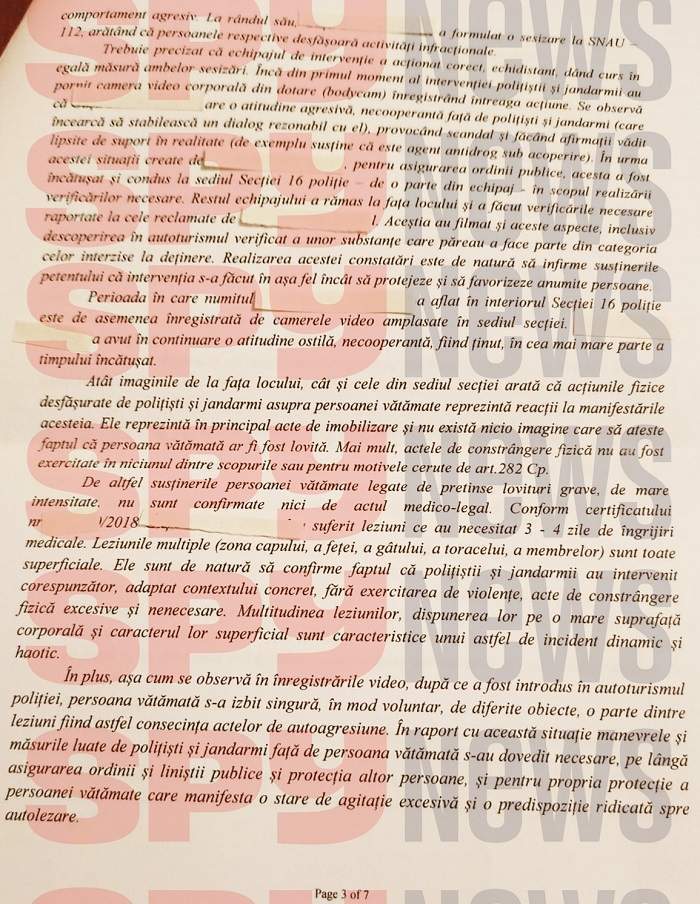 comportament agresiv. La rândul său,
a formulat o sesizare la SNAU –
112, arătând că persoanele respective desfășoară activități infracționale.
Trebuie precizat că echipajul de intervenție a acționat corect, echidistant, dând curs în
egală măsură ambelor sesizări. Încă din primul moment al intervenției polițiștii și jandarmii au
pornit camera video corporală din dotare (bodycam) înregistrând întreaga acțiune. Se observă
că are o atitudine agresivă, necooperantă față de polițiști și jandarmi (care
încearcă să stabilească un dialog rezonabil cu el), provocând scandal și făcând afirmații vădit
lipsite de suport în realitate (de exemplu susține că este agent antidrog sub acoperire). În urma
acestei situații create de , pentru asigurarea ordinii publice, acesta a fost
încătușat și condus la sediul Secției 16 poliție – de o parte din echipaj - în scopul realizării
verificărilor necesare. Restul echipajului a rămas la fața locului și a făcut verificările necesare
raportate la cele reclamate de l. Aceștia au filmat și aceste aspecte, inclusiv
descoperirea în autoturismul verificat a unor substanțe care păreau a face parte din categoria
celor interzise la deținere. Realizarea acestei constatări este de natură să infirme susținerile
petentului că intervenția s-a făcut în așa fel încât să protejeze și să favorizeze anumite persoane.
Perioada în care numitul a aflat în interiorul Secției 16 poliție
este de asemenea înregistrată de camerele video amplasate în sediul secției.
a avut în continuare o atitudine ostilă, necooperantă, fiind ținut, în cea mai mare parte a
timpului încătușat.
Atât imaginile de la fața locului, cât și cele din sediul secției arată că acțiunile fizice
desfășurate de polițiști și jandarmi asupra persoanei vătămate reprezintă reacții la manifestările
acesteia. Ele reprezintă în principal acte de imobilizare și nu există nicio imagine care să ateste
faptul că persoana vătămată ar fi fost lovită. Mai mult, actele de constrângere fizică nu au fost
exercitate în niciunul dintre scopurile sau pentru motivele cerute de art.282 Cp.
De altfel susținerile persoanei vătămate legate de pretinse lovituri grave, de mare
intensitate, nu sunt confirmate nici de actul medico-legal. Conform certificatului
nr /2018 suferit leziuni ce au necesitat 3 - 4 zile de îngrijiri
medicale. Leziunile multiple (zona capului, a feței, a gâtului, a toracelui, a membrelor) sunt toate
superficiale. Ele sunt de natură să confirme faptul că polițiștii și jandarmii au intervenit
corespunzător, adaptat contextului concret, fără exercitarea de violențe, acte de constrângere
fizică excesive și nenecesare. Multitudinea leziunilor, dispunerea lor pe o mare suprafață
corporală și caracterul lor superficial sunt caracteristice unui astfel de incident dinamic și
haotic.
În plus, așa cum se observă în înregistrările video, după ce a fost introdus în autoturismul
poliției, persoana vătămată s-a izbit singură, în mod voluntar, de diferite obiecte, o parte dintre
leziuni fiind astfel consecința actelor de autoagresiune. În raport cu această situație manevrele și
măsurile luate de polițiști și jandarmi față de persoana vătămată s-au dovedit necesare, pe lângă
asigurarea ordinii și liniștii publice și protecția altor persoane, și pentru propria protecție a
persoanei vătămate care manifesta o stare de agitație excesivă și o predispoziție ridicată spre
autolezare.
Page 3 of 7
SPY NEWS
SPY NEWS
SPY NEWS
SPY NEWS
SPY NEWS
SPY NEWS